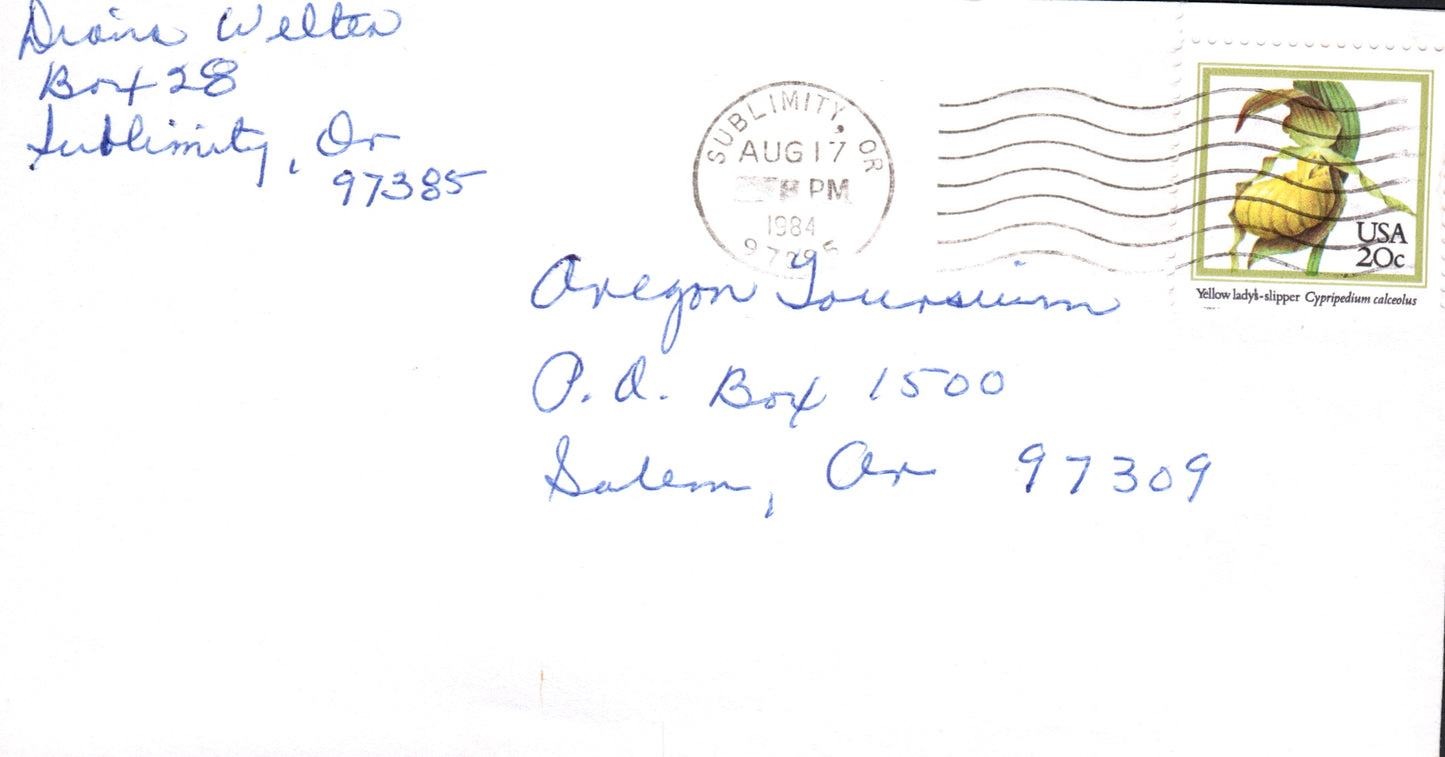 Diana Welter
Box 28
Sublimity, Or
97385
SUBLIMITY, OR
AUG 17
PM
1984
USA
20c
Yellow lady's-slipper Cypripedium calceolus
Oregon Toursuim
P.O. Box 1500
Salem, Or 97309